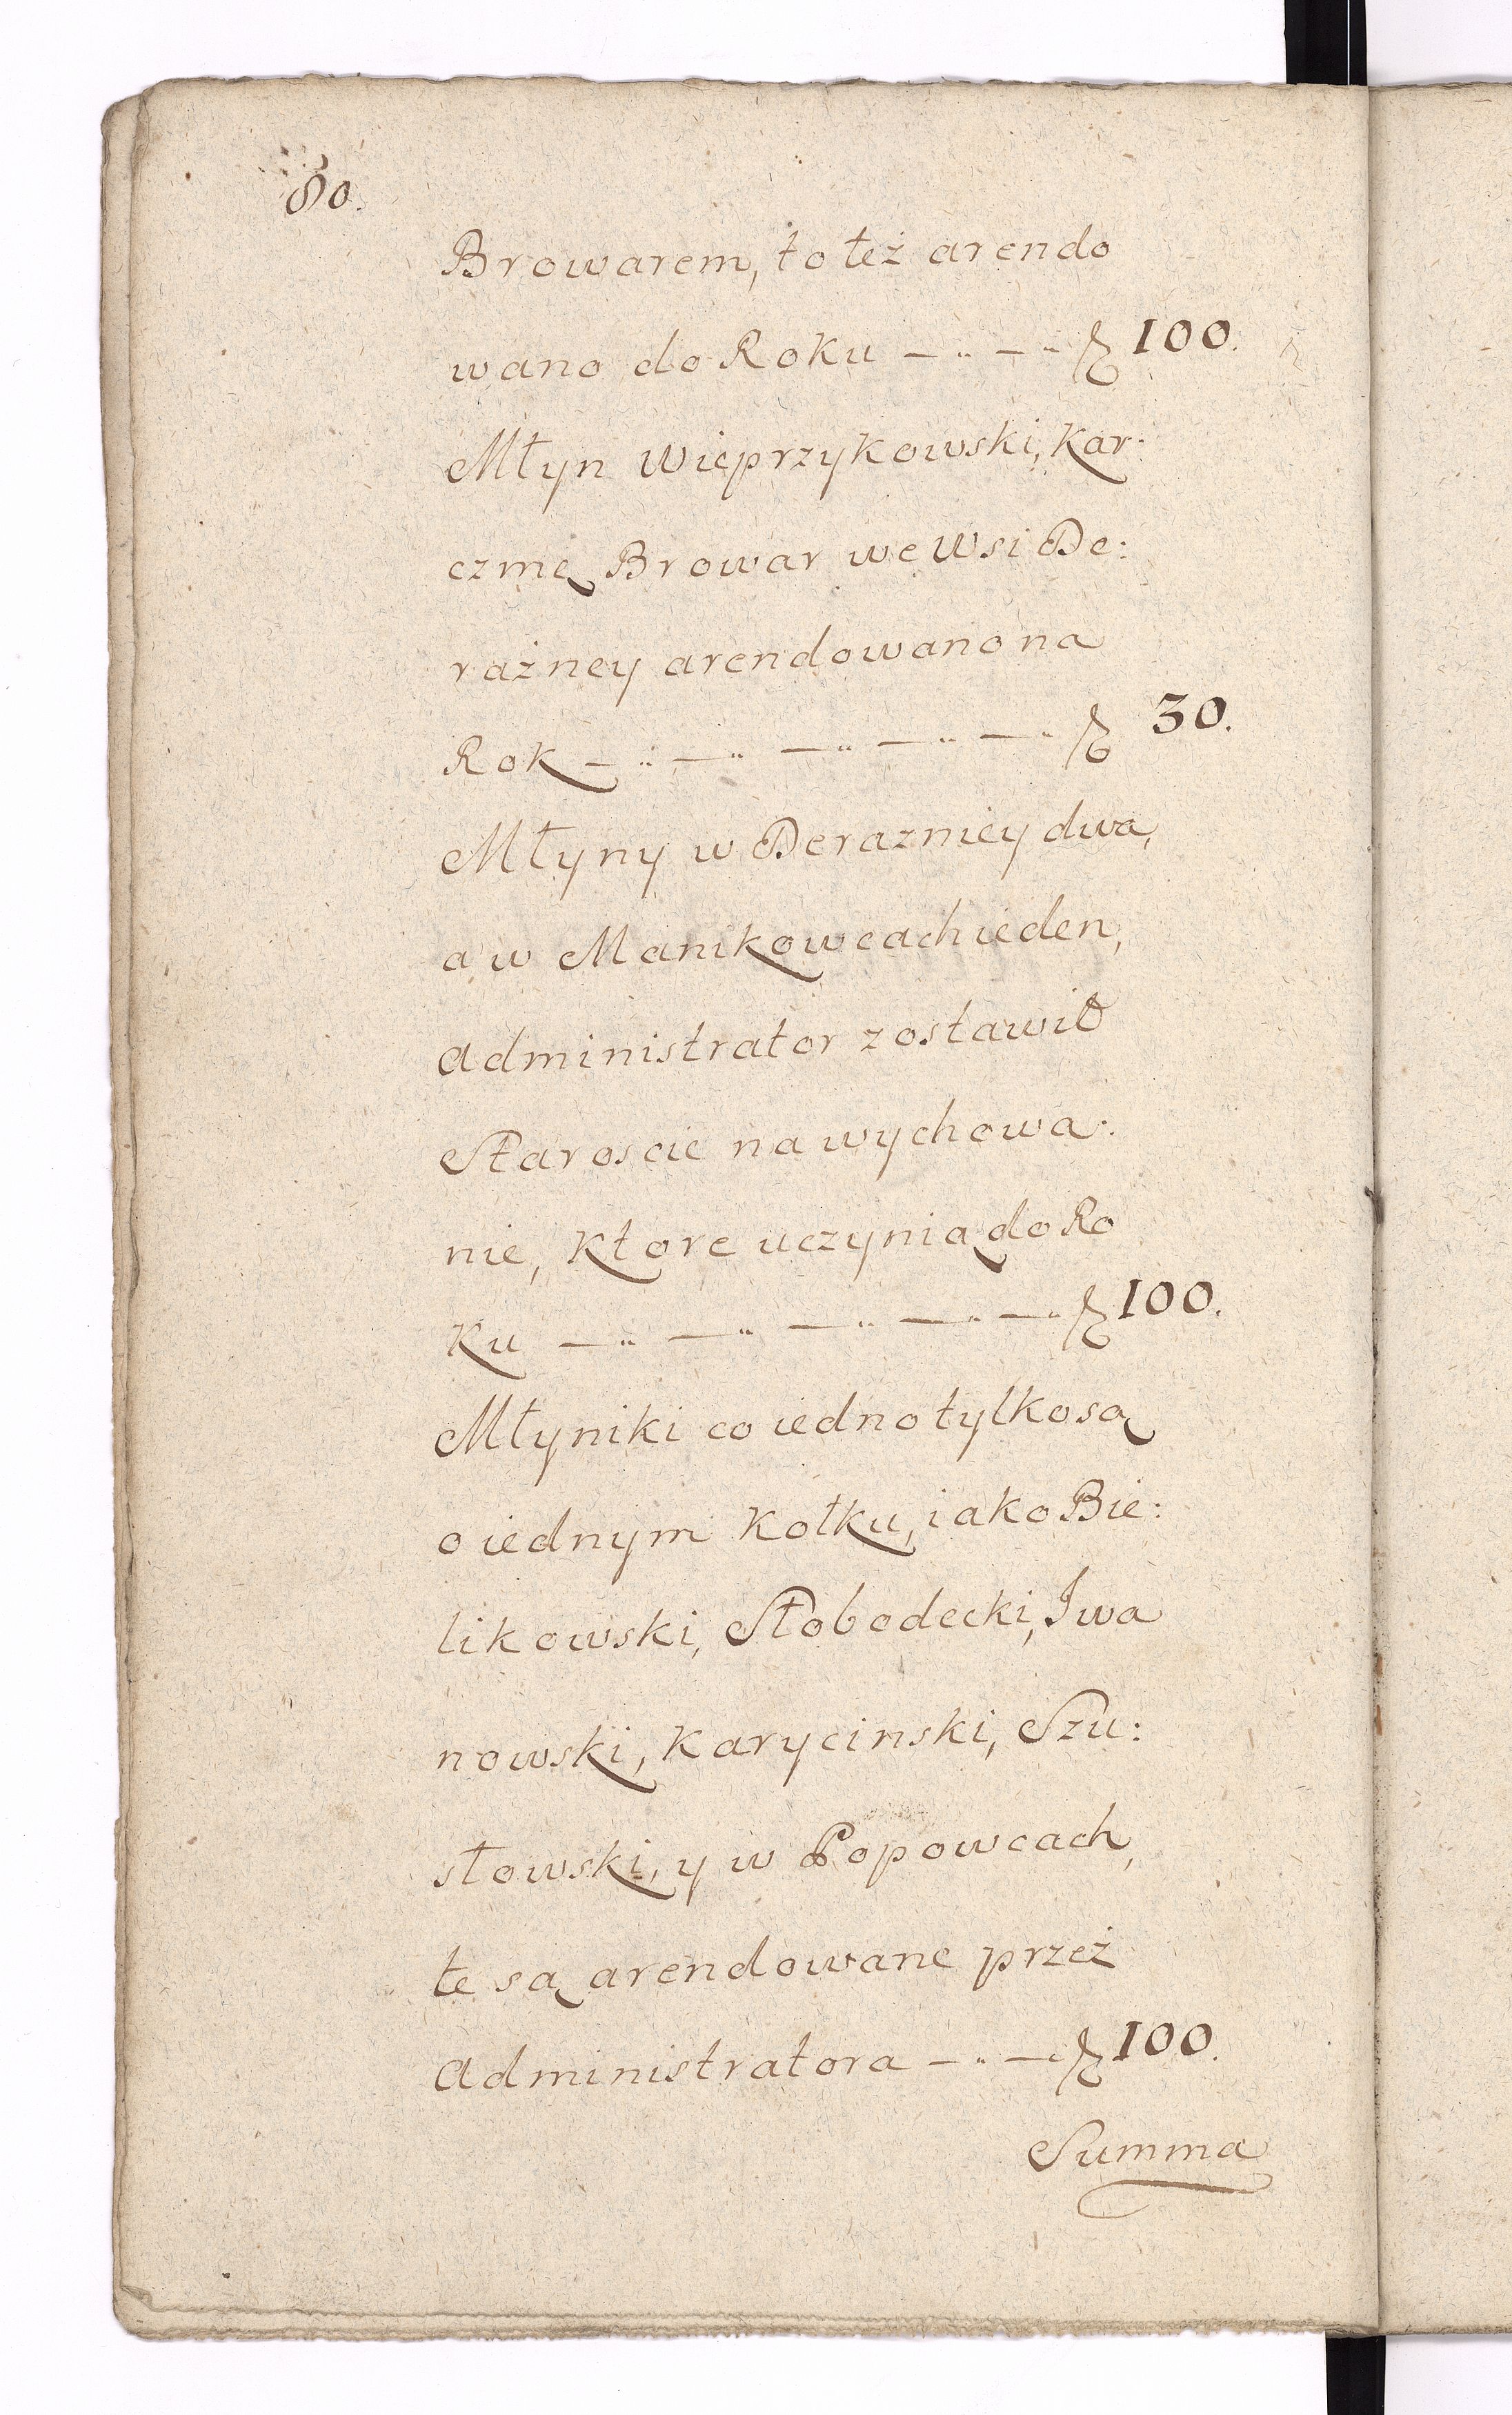 80.
Browarem, to też arendo
wano do Roku — „ — „ fl 100.
Młyn Wieprzykowski, Kar:
czmę Browar we Wsi De:
rażney arendowano na
Rok — „ — „ — „ — „ — „ fl 30.
Młyny w Derazniey dwa,
a w Manikowcach ieden,
Administrator zostawił
Staroscie na wychowa:
nie, Ktore uczynią do Ro
Ku — „ — „ — „ — „ — „ fl 100.
Młyniki co iedno tylko są
o iednym Kołku, iako Bie:
likowski, Słobodecki, Iwa
nowski, Karycinski, Szu:
słowski, y w Popowcach,
te są arendowane przeż
Administratora — „ — fl 100.
Summa